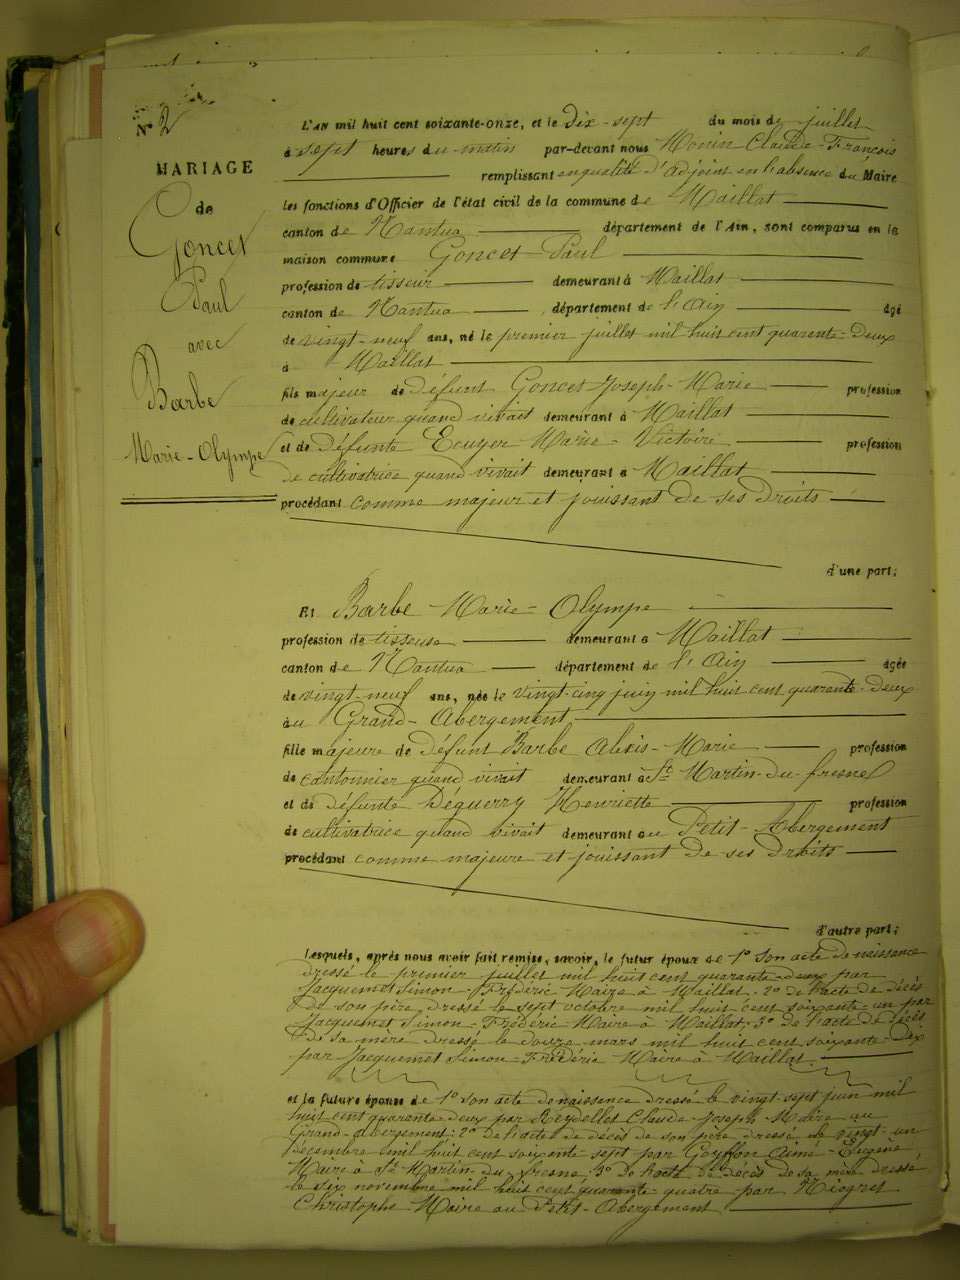 N° 2
MARIAGE
de
Goncet
Paul
avec
Barbe
Marie-Olympe
L'AN mil huit cent soixante-onze, et le Dix-sept du mois de juillet
à sept heures du matin par-devant nous Monin Claude-François
remplissant en qualité d'adjoint en l'absence du Maire
les fonctions d'Officier de l'état civil de la commune de Maillat
canton de Nantua département de l'Ain, sont comparus en la
maison commune Goncet Paul
profession de tisseur demeurant à Maillat
canton de Nantua département de l'Ain âgé
de vingt-neuf ans, né le premier juillet mil huit cent quarante-Deux
à Maillat
fils majeur de Défunt Goncet Joseph-Marie profession
de cultivateur quand vivait demeurant à Maillat
et de Défunte Ecuyer Marie-Victoire profession
de cultivatrice quand vivait demeurant à Maillat
procédant comme majeur et jouissant de ses Droits
d'une part;
Et Barbe Marie-Olympe
profession de tisseuse demeurant à Maillat
canton de Nantua département de l'Ain âgée
de vingt-neuf ans, née le vingt-cinq juin mil huit cent quarante-Deux
au Grand-Abergement
fille majeure de Défunt Barbe Alexis-Marie profession
de cantonnier quand vivait demeurant à St Martin-du-fresne
et de Défunte Déguerry Henriette profession
de cultivatrice quand vivait demeurant au Petit-Abergement
procédant comme majeure et jouissant de ses Droits
d'autre part;
Lesquels, après nous avoir fait remise, savoir, le futur époux de 1° Son acte de naissance
dressé le premier juillet mil huit cent quarante-deux par
Jacquemet Simon-Frédéric Maire à Maillat. 2° de l'acte de décès
de son père, dressé le sept octobre mil huit cent soixante-un par
Jacquemet Simon-Frédéric-Maire à Maillat; 3° de l'acte de décès
de sa mère dressé le douze mars mil huit cent soixante-Dix
par Jacquemet Simon-Frédéric Maire à Maillat.
et la future épouse de 1° son acte de naissance dressé le vingt-sept juin mil
huit cent quarante-deux par Reydellet Claude-Joseph-Maire au
Grand-abergement: 2° de l'acte de décès de son père dressé le vingt-un
décembre mil huit cent soixante-sept par Goyffon Aimé-Eugène,
Maire à St-Martin-du-fresne, 3° de l'acte de décès de sa mère dressé
le six novembre mil huit cent quarante-quatre par Niogret
Christophe-Maire au Petit-Abergement